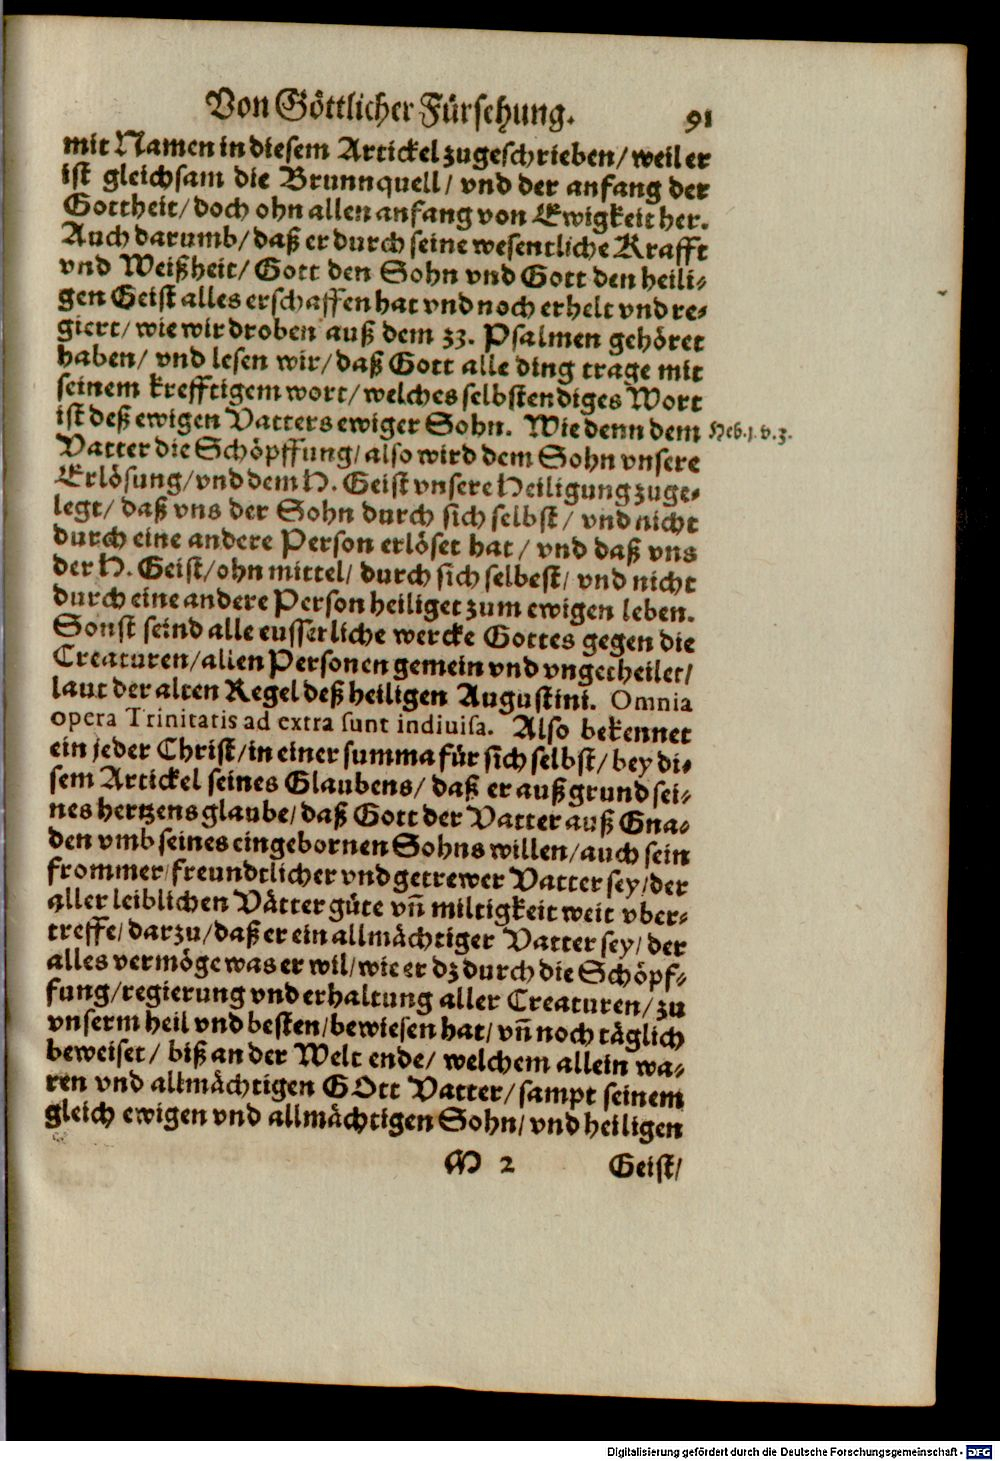 Von Göttlicher Fürsehung. 91
mit Namen in diesem Artickel zugeschrieben/ weil er
ist gleichsam die Brunnquell/ vnd der anfang der
Gottheit/ doch ohn allen anfang von Ewigkeit her.
Auch darumb/ daß er durch seine wesentliche Krafft
vnd Weißheit/ Gott den Sohn vnd Gott den heili-
gen Geist alles erschaffen hat vnd noch erhelt vnd re-
giert/ wie wir droben auß dem 33. Psalmen gehöret
haben/ vnd lesen wir/ daß Gott alle ding trage mit
seinem krefftigem wort/ welches selbstendiges Wort
ist deß ewigen Vatters ewiger Sohn. Wie denn dem
Heb. 1. v. 3.
Vatter die Schöpffung/ also wird dem Sohn vnsere
Erlösung/ vnd dem H. Geist vnsere Heiligung zuge-
legt/ daß vns der Sohn durch sich selbst/ vnd nicht
durch eine andere Person erlöset hat/ vnd daß vns
der H. Geist/ ohn mittel/ durch sich selbest/ vnd nicht
durch eine andere Person heiliget zum ewigen leben.
Sonst seind alle eusserliche wercke Gottes gegen die
Creaturen/ allen Personen gemein vnd vngetheilet/
laut der alten Regel deß heiligen Augustini. Omnia
opera Trinitatis ad extra sunt indiuisa. Also bekennet
ein jeder Christ/ in einer summa für sich selbst/ bey di-
sem Artickel seines Glaubens/ daß er auß grund sei-
nes hertzens glaube/ daß Gott der Vatter auß Gna-
den vmb seines eingebornen Sohns willen/ auch sein
frommer/ freundtlicher vnd getrewer Vatter sey/ der
aller leiblichen Vätter güte vñ miltigkeit weit vber-
treffe/ darzu/ daß er ein allmächtiger Vatter sey/ der
alles vermöge was er wil/ wie er dz durch die Schöpf-
fung/ regierung vnd erhaltung aller Creaturen/ zu
vnserm heil vnd besten/ bewiesen hat/ vñ noch täglich
beweiset/ biß an der Welt ende/ welchem allein wa-
ren vnd allmächtigen GOtt Vatter/ sampt seinem
gleich ewigen vnd allmächtigen Sohn/ vnd heiligen
M 2 Geist/
Digitalisierung gefördert durch die Deutsche Forschungsgemeinschaft - DFG